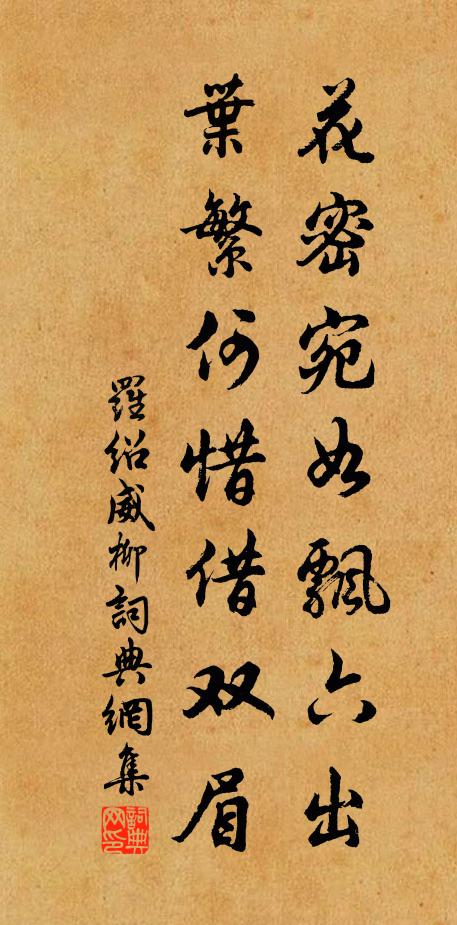 花密宛如飘六出
葉繁何惜借双眉
羅紹威柳詞典網集
詞典网印